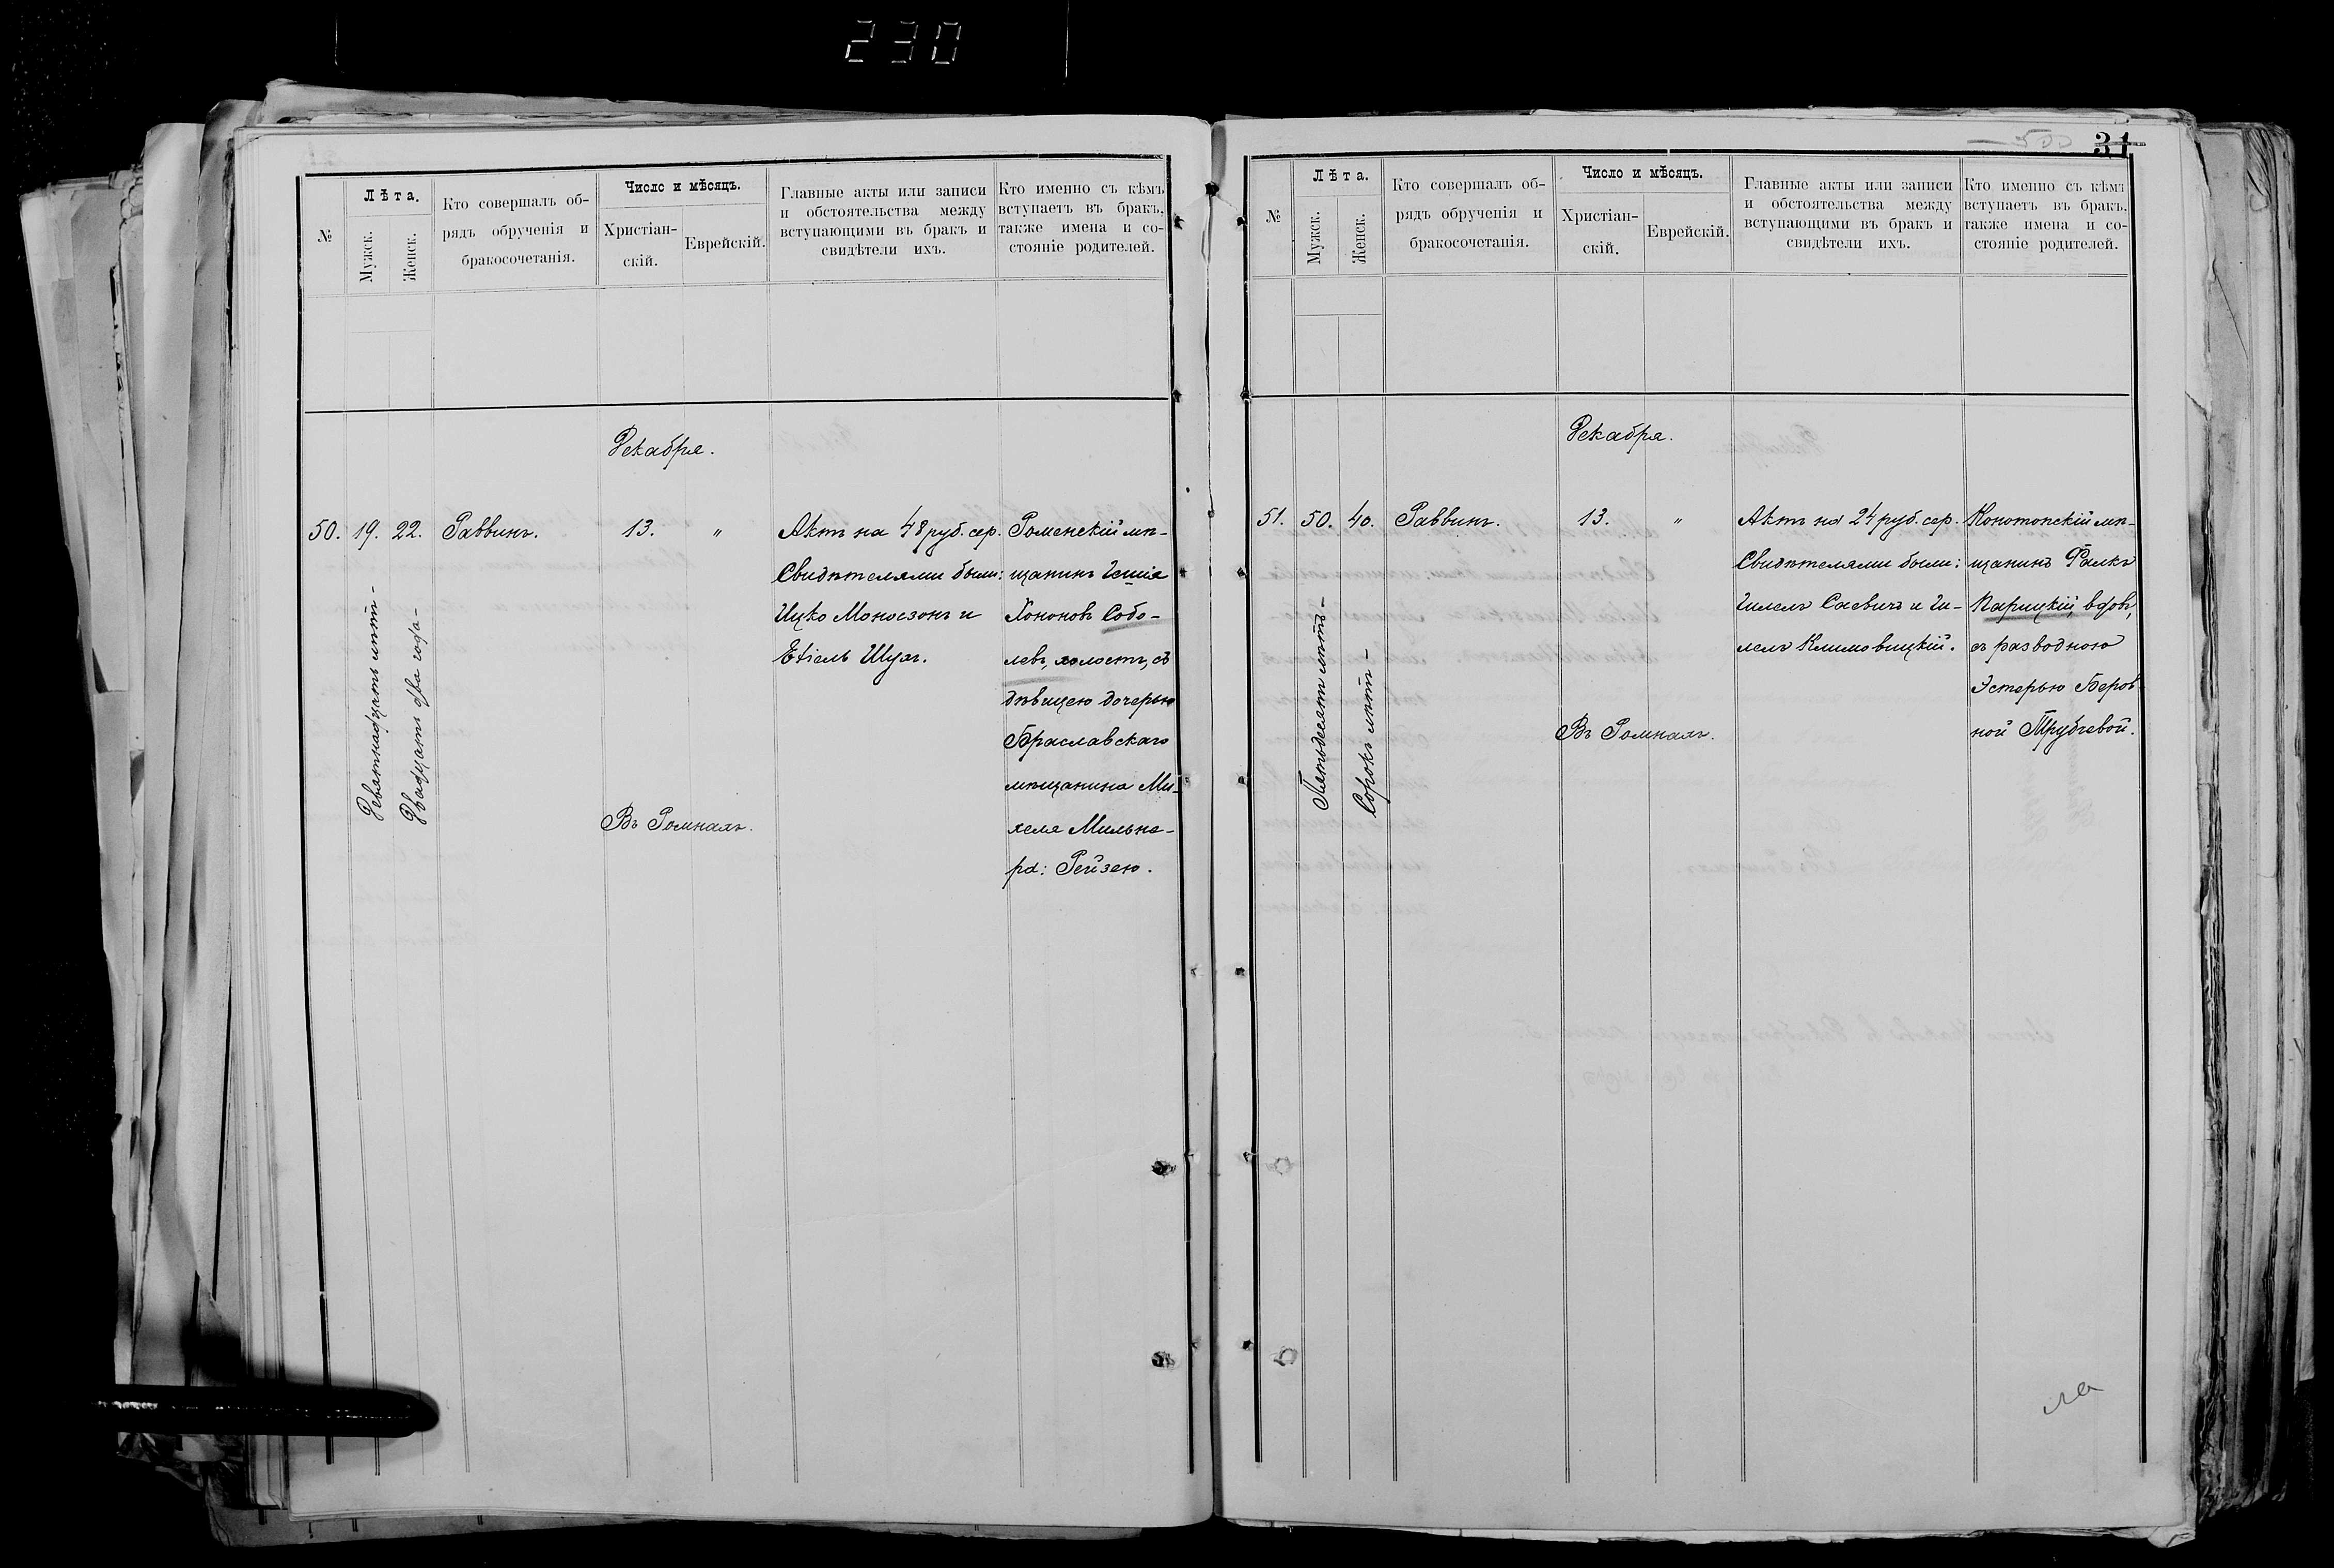 230
№
Лѣта.
Мужск.
Женск.
Кто совершалъ об-
рядъ обрученія и
бракосочетанія.
Число и мѣсяцъ.
Христіан-
скій.
Еврейскій.
Главные акты или записи
и обстоятельства между
вступающими въ бракъ и
свидѣтели ихъ.
Кто именно съ кѣмъ
вступаетъ въ бракъ,
также имена и со-
стояніе родителей.
Декабря.
50. 19. 22. Раввинъ. 13. "
Девятнадцать лѣтъ -
Двадцать два года -
Въ Ромнахъ.
Актъ на 48 руб. сер.
Свидѣтелями были:
Ицко Моносзонъ и
Ехіель Шуръ.
Роменскій мѣ-
щанинъ
Хононовъ Собо-
левъ, холостъ, съ
дѣвицею дочерью
Браславскаго
мѣщанина Ми-
хеля Мильне-
ра: Рейзею.
500
31
№
Лѣта.
Мужск.
Женск.
Кто совершалъ об-
рядъ обрученія и
бракосочетанія.
Число и мѣсяцъ.
Христіан-
скій.
Еврейскій.
Главные акты или записи
и обстоятельства между
вступающими въ бракъ и
свидѣтели ихъ.
Кто именно съ кѣмъ
вступаетъ въ бракъ,
также имена и со-
стояніе родителей.
Декабря.
51. 50. 40. Раввинъ. 13. "
Пятьдесятъ лѣтъ -
Сорокъ лѣтъ -
Въ Ромнахъ.
Актъ на 24 руб. сер.
Свидѣтелями были:
Гилель Саевичъ и Ги-
лель Климовицкій.
Конотопскій мѣ-
щанинъ Фалкъ
Парицкій, вдовъ,
съ разводною
Эстерью Беров-
ной Трубчевой.